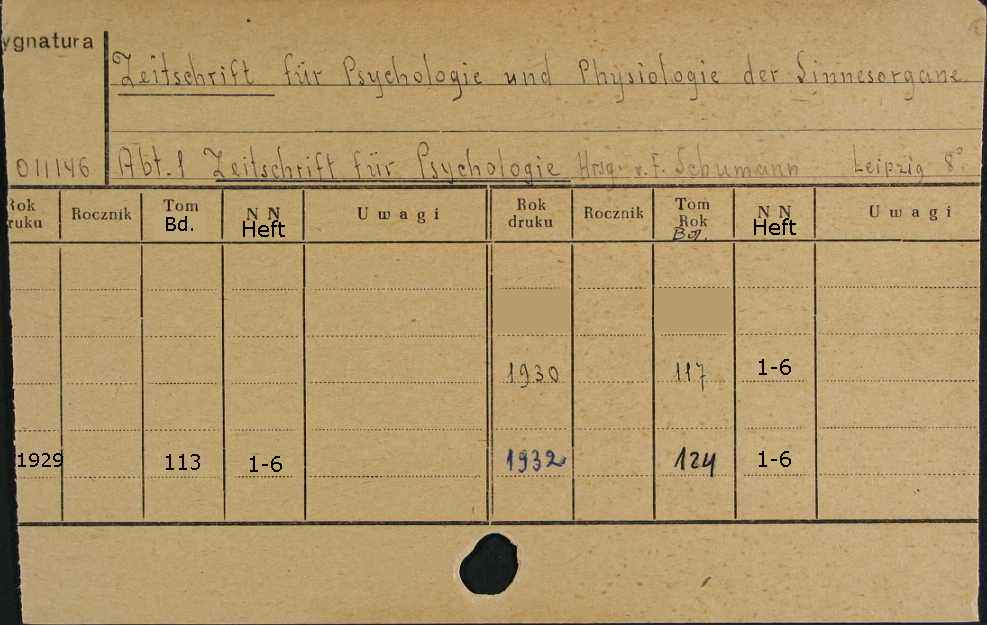 ygnatura
Zeitschrift für Psychologie und Physiologie der Sinnesorgane
011146 Abt. 1 Zeitschrift für Psychologie Hrsg. v. F. Schumann Leipzig 8°
Rok druku Rocznik Tom Bd. N N Heft Uwagi Rok druku Rocznik Tom Rok Bd. N N Heft Uwagi
1930 117 1-6
1929 113 1-6 1932 124 1-6